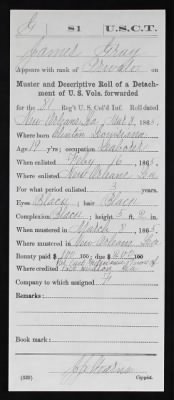 G | 81 | U.S.C.T.
James Gray
Appears with rank of Private on
Muster and Descriptive Roll of a Detach-
ment of U. S. Vols. forwarded
for the 81 Reg't U. S. Col'd Inf. Roll dated
New Orleans La Mar 8, 1865.
Where born Clinton Louisiana
Age 19 y'rs; occupation Laborer
When enlisted Feby 16, 1865.
Where enlisted New Orleans La
For what period enlisted 3 years.
Eyes Black; hair Black
Complexion Black; height 5 ft. 2 in.
When mustered in March 8, 1865.
Where mustered in New Orleans La
Bounty paid $ 100; due $ 100
Where credited
Company to which assigned
Remarks:
Book mark:
(339) Copyist.